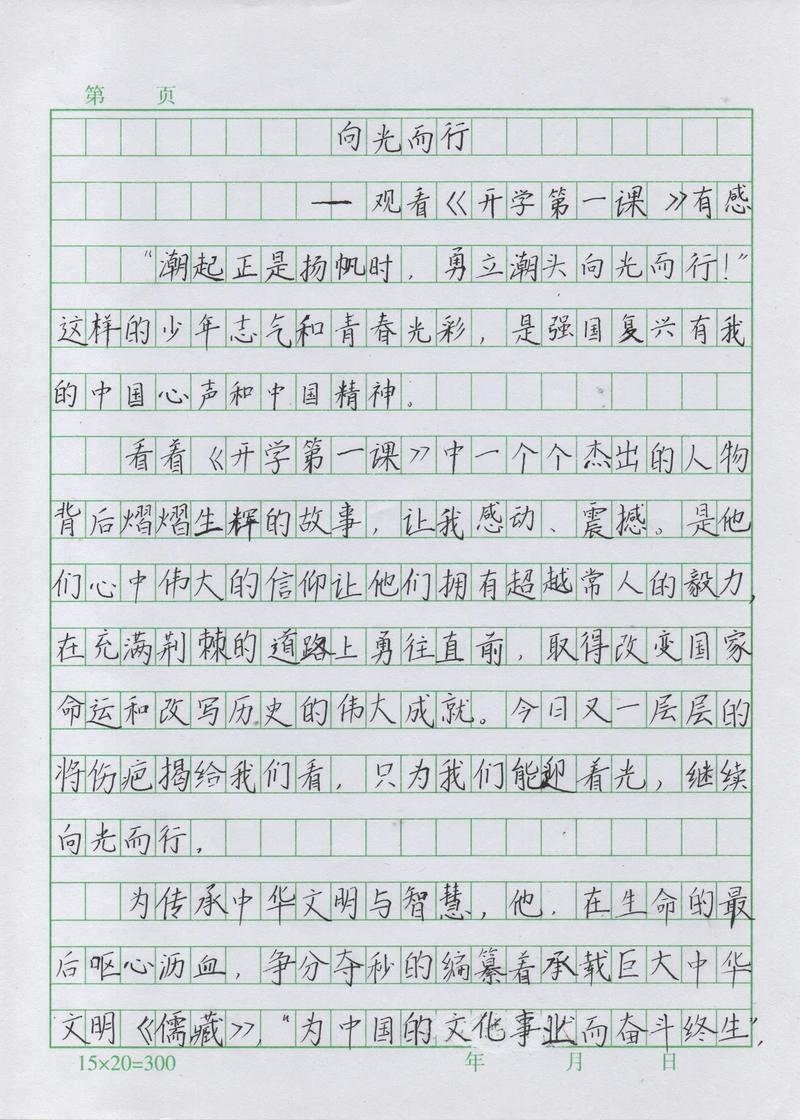 第 页
向光而行
—观看《开学第一课》有感
“潮起正是扬帆时，勇立潮头向光而行！”
这样的少年志气和青春光彩，是强国复兴有我
的中国心声和中国精神。
看着《开学第一课》中一个个杰出的人物
背后熠熠生辉的故事，让我感动、震撼。是他
们心中伟大的信仰让他们拥有超越常人的毅力，
在充满荆棘的道路上勇往直前，取得改变国家
命运和改写历史的伟大成就。今日又一层层的
将伤疤揭给我们看，只为我们能迎着光，继续
向光而行，
为传承中华文明与智慧，他．在生命的最
后呕心沥血，争分夺秒的编纂着承载巨大中华
文明《儒藏》，“为中国的文化事业而奋斗终生”，
15×20=300 年 月 日